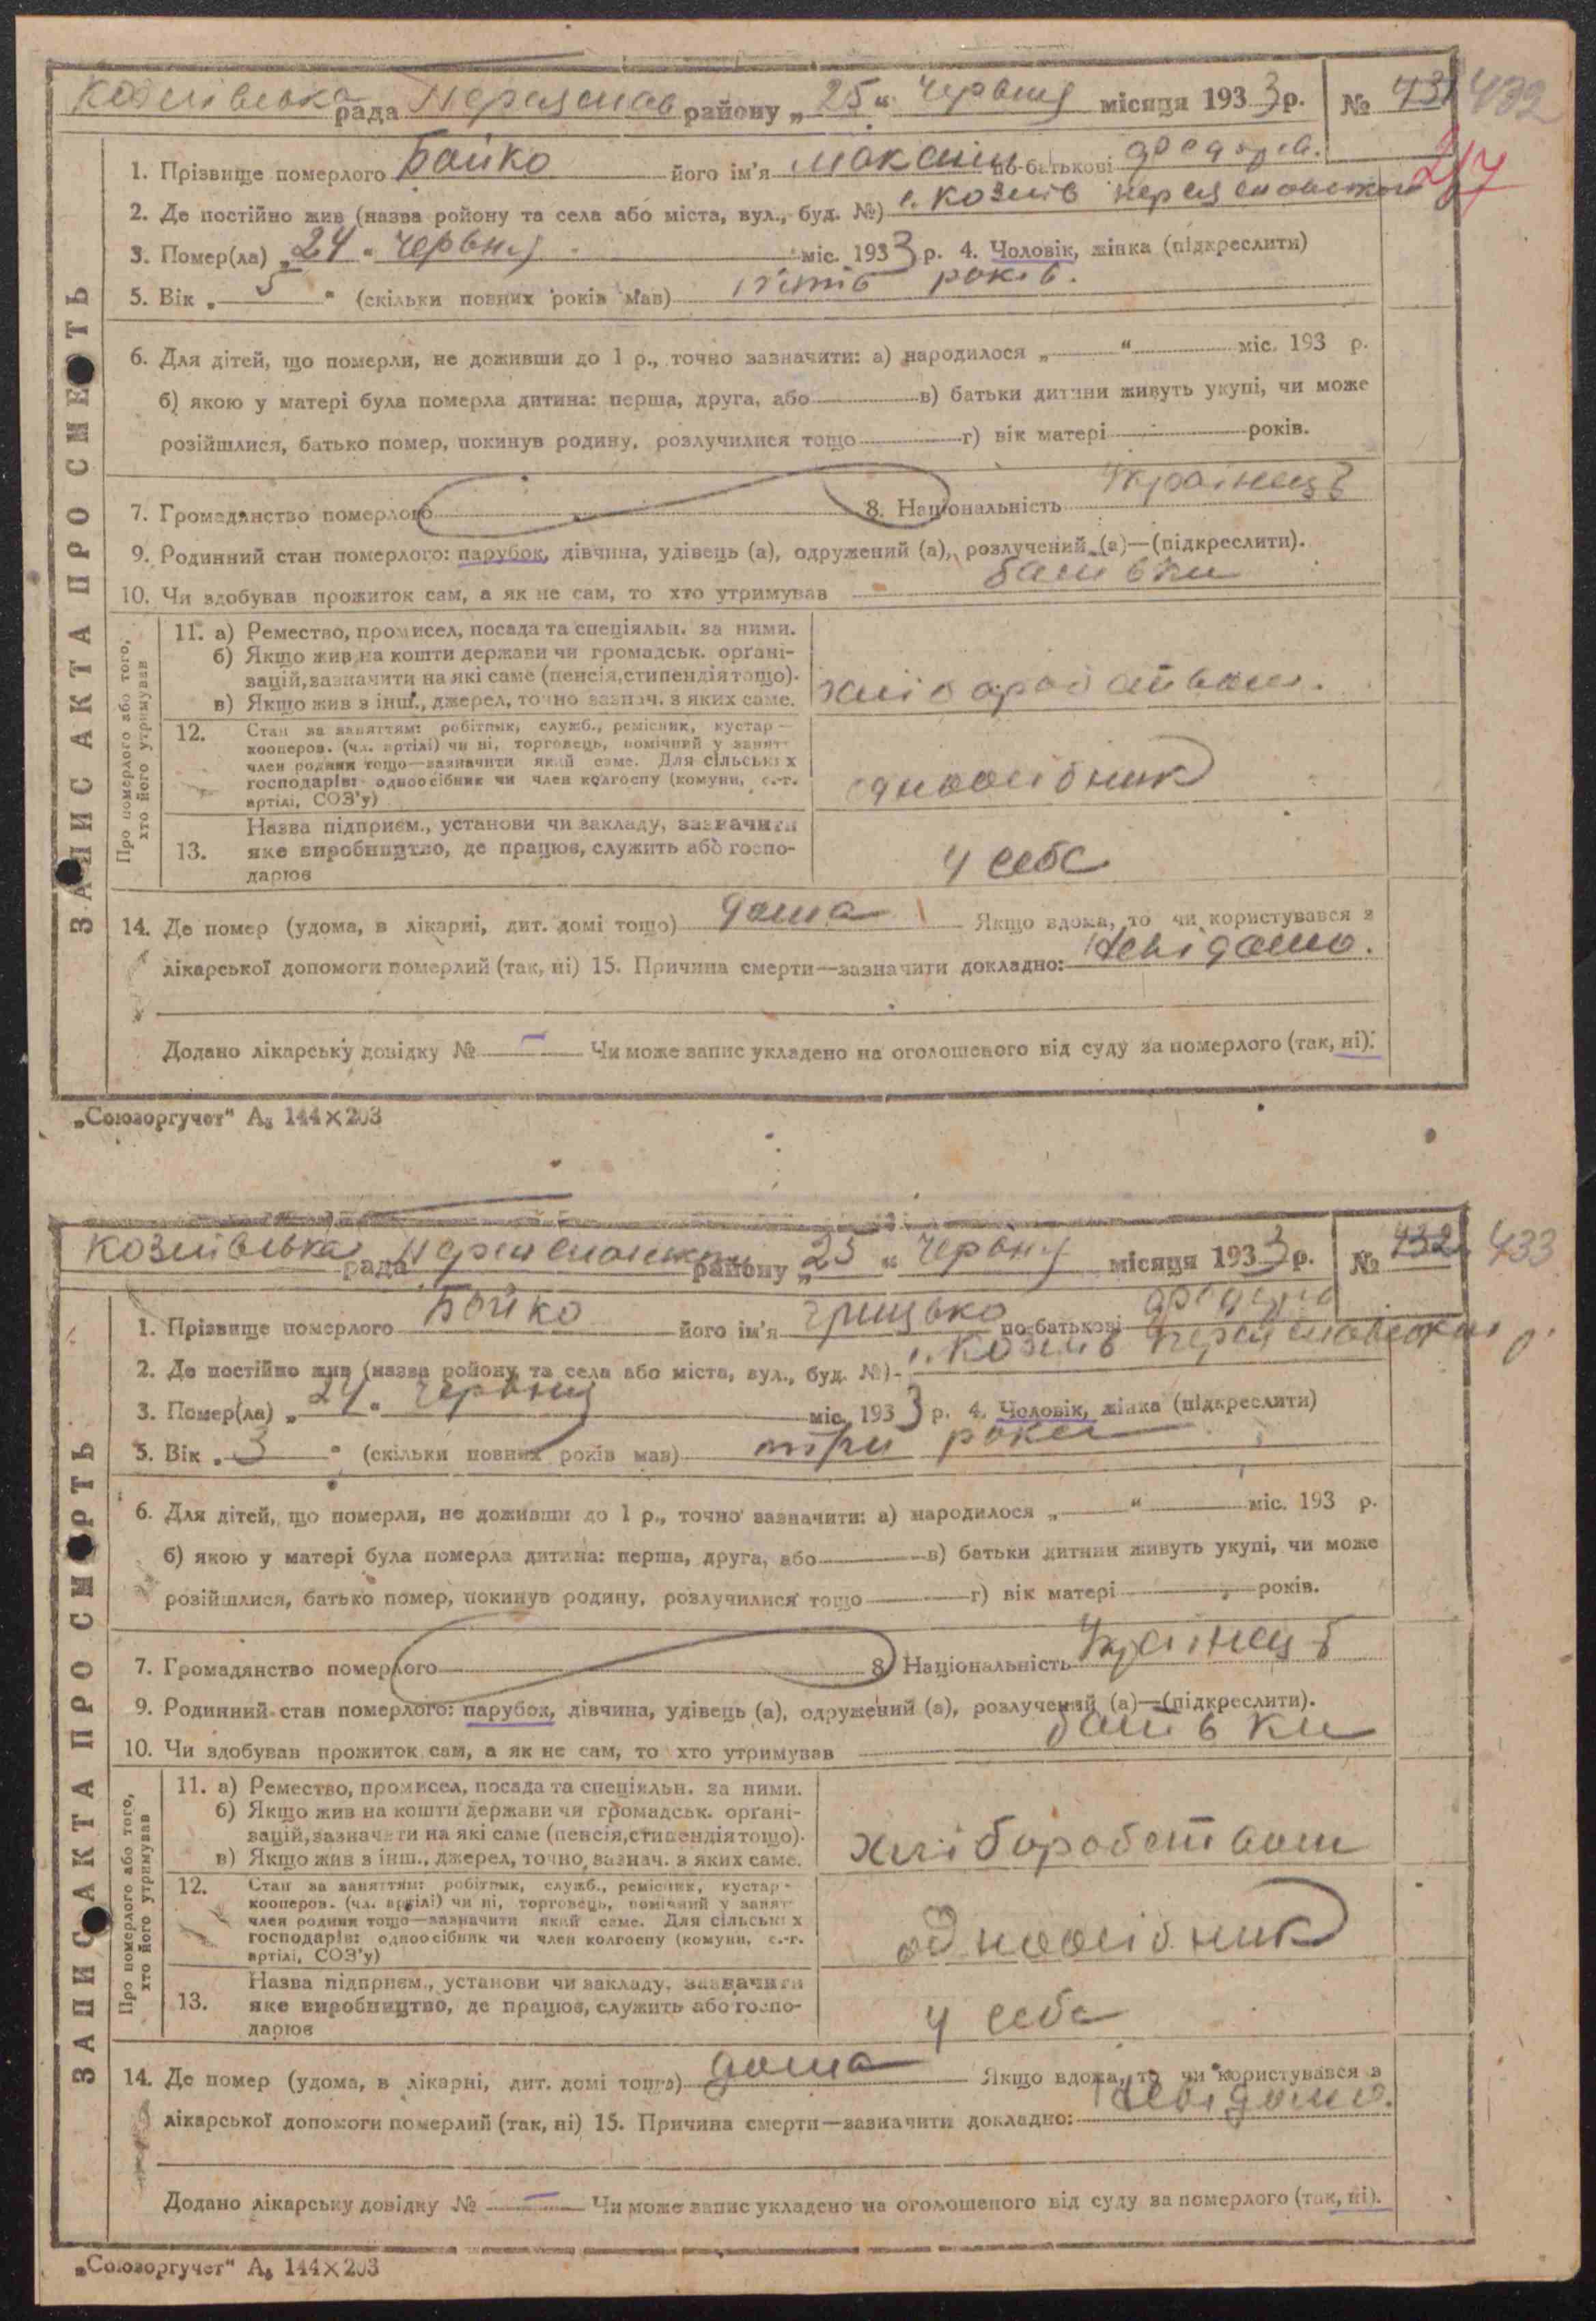 Козлівська рада Переяслав району „25“ червня місяця 1933 р. № 431 432
217
1. Прізвище померлого Бойко його ім'я Максим по-батькові
2. Де постійно жив (назваройону та села або міста, вул., буд. №) с. Козлів Переяславського
3. Помер(ла) „24“ червня міс. 1933 р. 4. Чоловік, жінка (підкреслити)
5. Вік „5“ (скільки повних років мав) п'ять років.
6. Для дітей, що померли, не доживши до 1 р., точно зазначити: а) народилося „ “ міс. 193 р.
б) якою у матері була померла дитина: перша, друга, або в) батьки дитини живуть укупі, чи може
розійшлися, батько помер, покинув родину, розлучилися тощо г) вік матері років.
7. Громадянство померлого 8. Національність Українець
9. Родинний стан померлого: парубок, дівчина, удівець (а), одружений (а), розлучений (а)—(підкреслити).
10. Чи здобував прожиток сам, а як не сам, то хто утримував батьки
ЗАПИС АКТА ПРО СМЕРТЬ
Про померлого або того, хто його утримував
11. а) Ремество, промисел, посада та спеціяльн. за ними.
б) Якщо жив на кошти держави чи громадськ. органі-
зацій, зазначити на які саме (пенсія, стипендія тощо).
в) Якщо жив з інш., джерел, точно зазнач. з яких саме.
хліборобством.
12. Стан за заняттям: робітник, служб., ремісник, кустар-
кооперов. (чл. артілі) чи ні, торговець, помічний у занят.
член родини тощо—зазначити який саме. Для сільських
господарів: одноосібник чи член колгоспу (комуни, с.-г.
артілі, СОЗ'у)
одноосібник
13. Назва підприєм., установи чи закладу, зазначити
яке виробництво, де працює, служить або госпо-
дарює
у себе
14. Де помер (удома, в лікарні, дит. домі тощо) дома Якщо вдома, то чи користувався з
лікарської допомоги померлий (так, ні) 15. Причина смерти—зазначити докладно: Невідомо.
Додано лікарську довідку № — Чи може запис укладено на оголошеного від суду за померлого (так, ні).
„Союзоргучет“ А₅ 144×203
Козлівська рада Переяславського району „25“ червня місяця 1933 р. № 432 433
1. Прізвище померлого Бойко його ім'я Грицько по-батькові
2. Де постійно жив (назва ройону та села або міста, вул., буд. №) с. Козлів Переяславського р.
3. Помер(ла) „24“ червня міс. 1933 р. 4. Чоловік, жінка (підкреслити)
5. Вік „3“ (скільки повних років мав) три роки
6. Для дітей, що померли, не доживши до 1 р., точно зазначити: а) народилося „ “ міс. 193 р.
б) якою у матері була померла дитина: перша, друга, або в) батьки дитини живуть укупі, чи може
розійшлися, батько помер, покинув родину, розлучилися тощо г) вік матері років.
7. Громадянство померлого 8. Національність Українець
9. Родинний стан померлого: парубок, дівчина, удівець (а), одружений (а), розлучений (а)—(підкреслити).
10. Чи здобував прожиток сам, а як не сам, то хто утримував батьки
ЗАПИС АКТА ПРО СМЕРТЬ
Про померлого або того, хто його утримував
11. а) Ремество, промисел, посада та спеціяльн. за ними.
б) Якщо жив на кошти держави чи громадськ. органі-
зацій, зазначити на які саме (пенсія, стипендія тощо).
в) Якщо жив з інш., джерел, точно зазнач. з яких саме.
хліборобством
12. Стан за заняттям: робітник, служб., ремісник, кустар-
кооперов. (чл. артілі) чи ні, торговець, помічний у занят.
член родини тощо—зазначити який саме. Для сільських
господарів: одноосібник чи член колгоспу (комуни, с.-г.
артілі, СОЗ'у)
одноосібник
13. Назва підприєм., установи чи закладу, зазначити
яке виробництво, де працює, служить або госпо-
дарює
у себе
14. Де помер (удома, в лікарні, дит. домі тощо) дома Якщо вдома, то чи користувався з
лікарської допомоги померлий (так, ні) 15. Причина смерти—зазначити докладно: Невідомо.
Додано лікарську довідку № — Чи може запис укладено на оголошеного від суду за померлого (так, ні).
„Союзоргучет“ А₅ 144×203